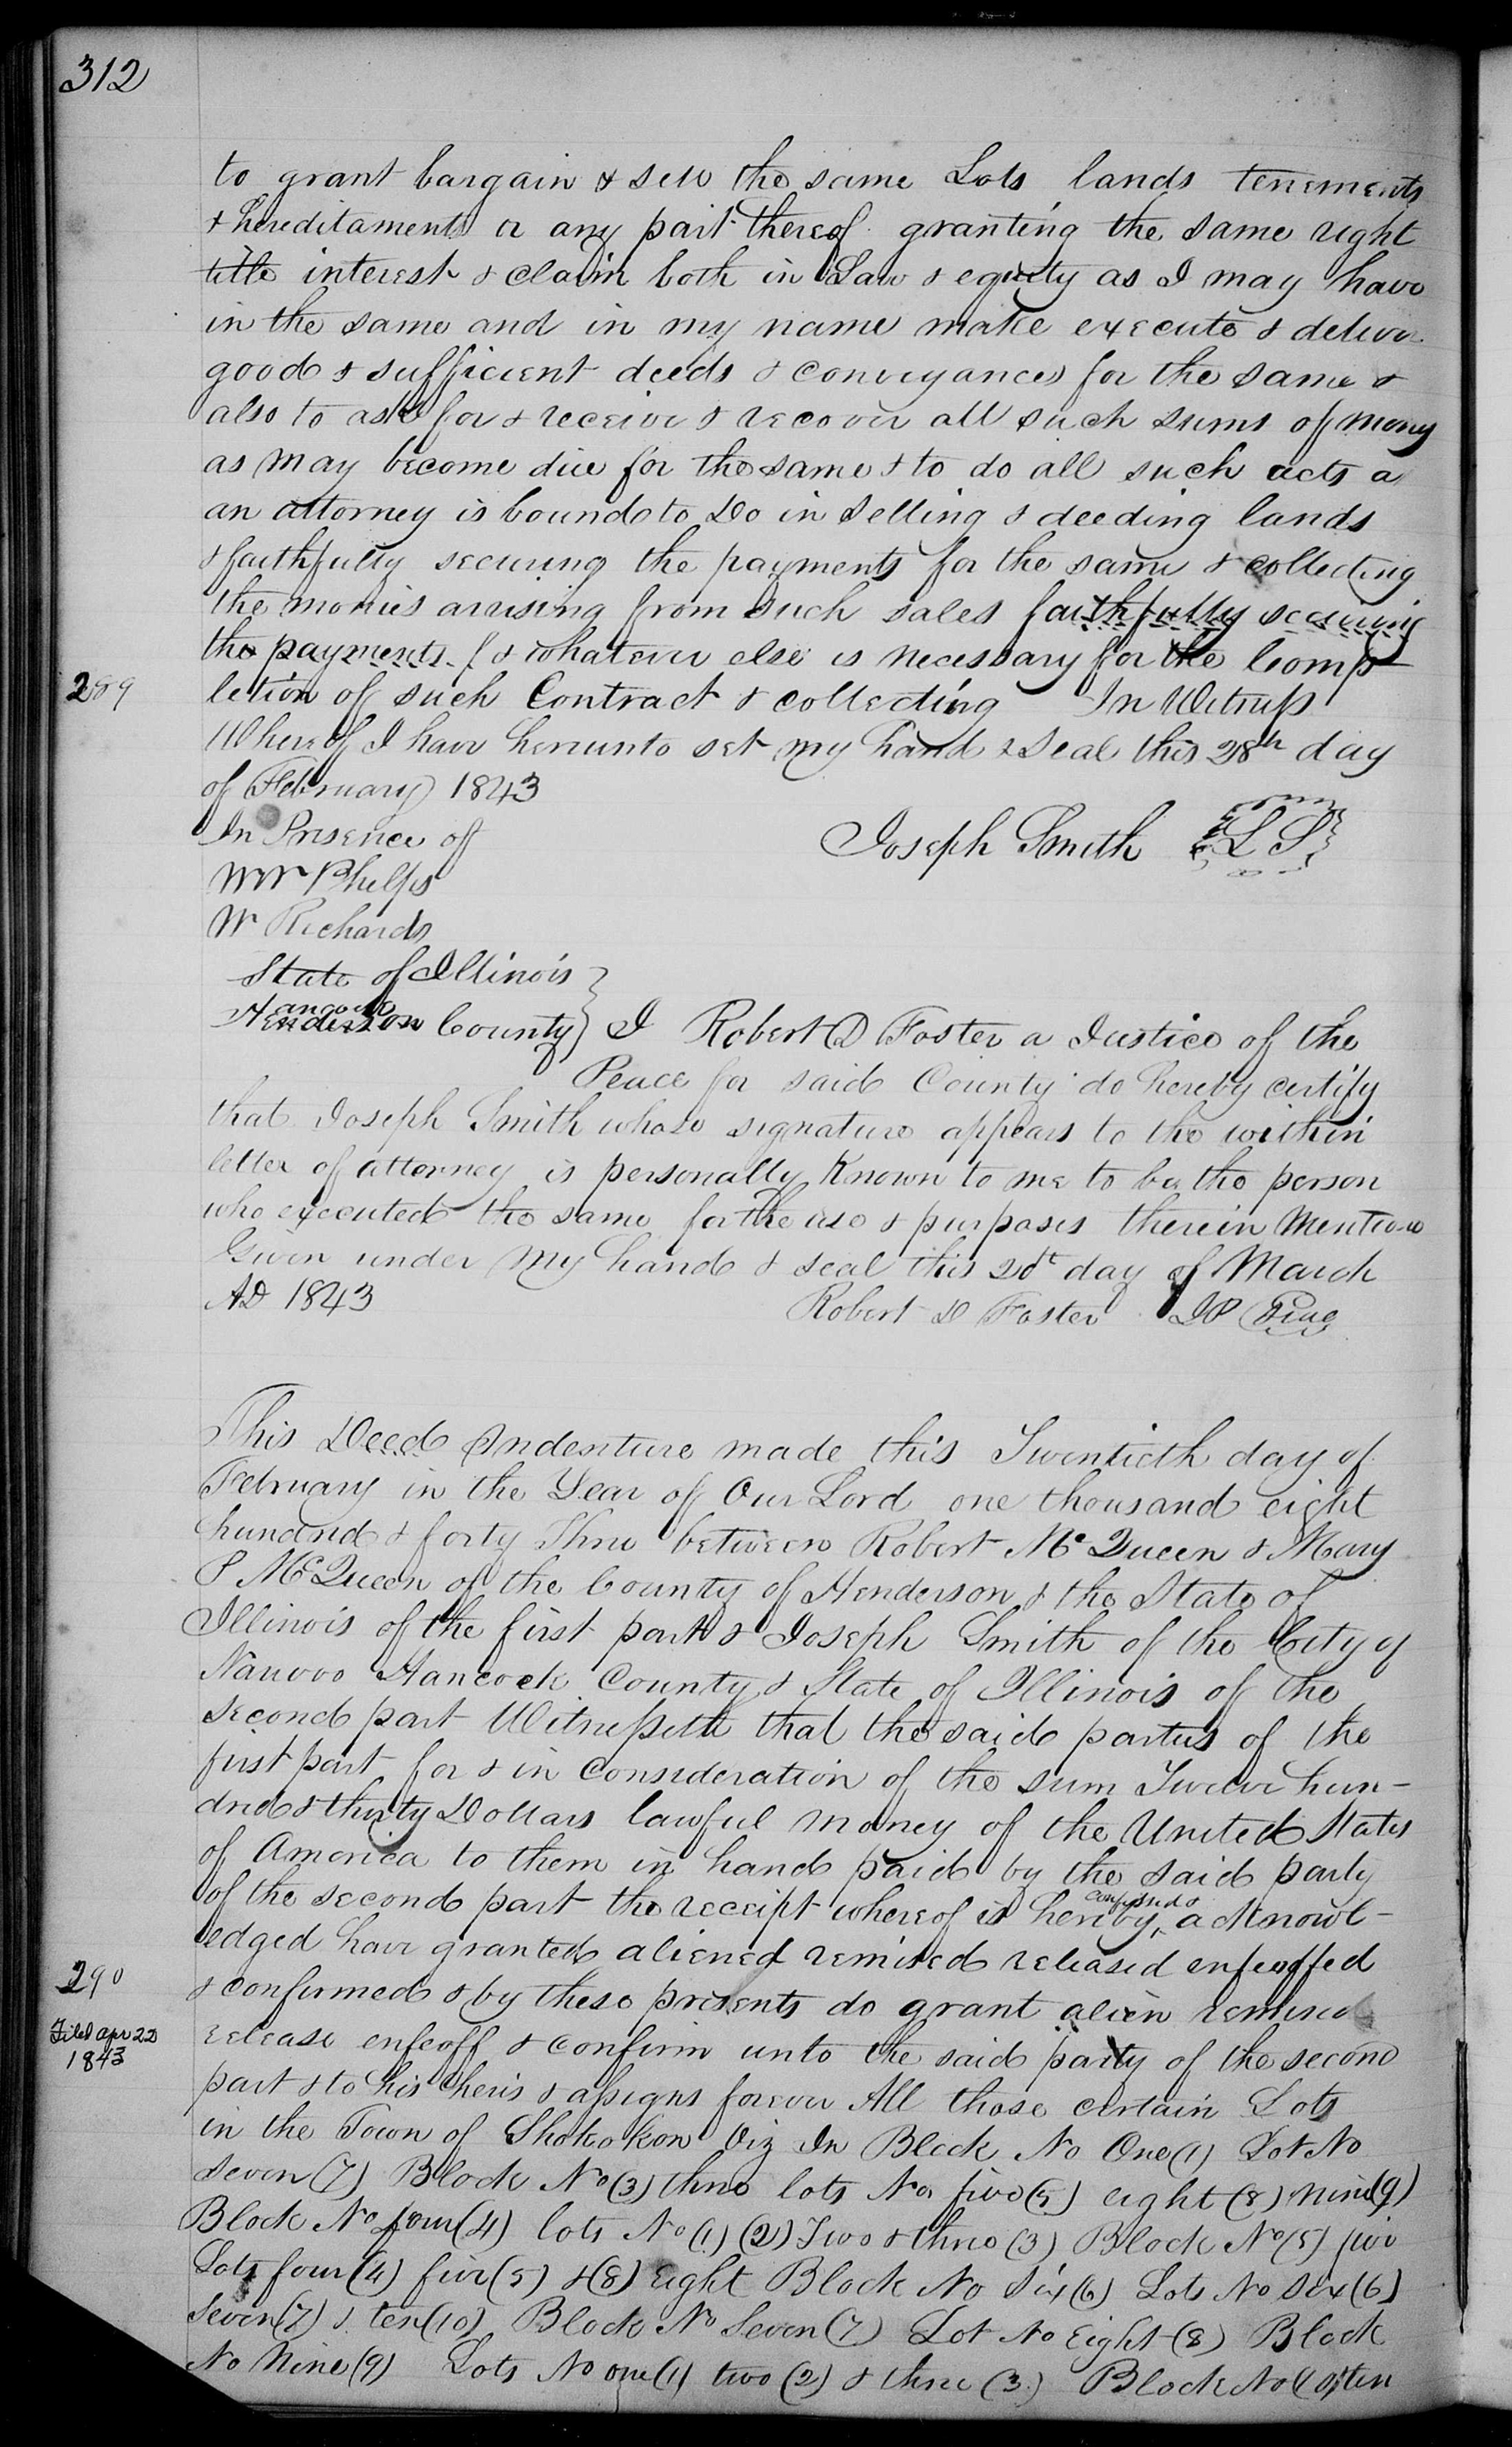 312
to grant bargain & sell the same Lots lands tenements
& hereditaments or any part thereof granting the same right
title interest & claim both in Law & equity as I may have
in the same and in my name make execute & deliver
good & sufficient deeds & conveyances for the same &
also to ask for & receive & recover all such sums of money
as may become due for the same & to do all such acts as
an attorney is bound to Do in selling & deeding lands
& faithfully securing the payments for the same & collecting
the monies arrising from such sales faithfully securing
the payments f & whatever else is necessary for the Comp
289
letion of such Contract & collecting In Witness
Whereof I have hereunto set my hand & Seal this 28th day
of February 1843
In Presence of
Joseph Smith L S
WW Phelps
W Richards
State of Illinois
Hancock
Henderson County I Robert D Foster a Justice of the
Peace for said County do hereby certify
that Joseph Smith whose signature appears to the within
letter of attorney is personally Known to me to be the person
who executed the same for the use & purposes therein Mentione
Given under my hand & seal this day of March
AD 1843
Robert D Foster JP Seal
This Deed Indenture made this Twentieth day of
February in the Year of Our Lord one thousand eight
hundred & forty Three between Robert McQueen & Mary
P McQueen of the County of Henderson & the State of
Illinois of the first part & Joseph Smith of the City of
Nauvoo Hancock County & State of Illinois of the
second part Witnesseth that the said parties of the
first part for & in Consideration of the sum Twelve hun-
dred & thirty Dollars lawful money of the United States
of America to them in hand paid by the said party
of the second part the receipt whereof is hereby acknowl-
edged have granted aliened remised released enfeoffed
290
& confirmed & by these presents do grant alien remise
Filed apr 22
1843
release enfeoff & confirm unto the said party of the second
part & to his heris & assigns forever All those certain Lots
in the Town of Shokokon Viz In Block No One (1) Lot No
Seven (7) Block No (3) three lots No five (5) eight (8) nine (9)
Block No four (4) lots No (1) (2) Two & three (3) Block No (5) five
Lots four (4) five (5) & (8) Eight Block No Six (6) Lots No Six (6)
Seven (7) & ten (10) Block No Seven (7) Lot No Eight (8) Block
No Nine (9) Lots No one (1) two (2) & three (3) Block No (10) ten